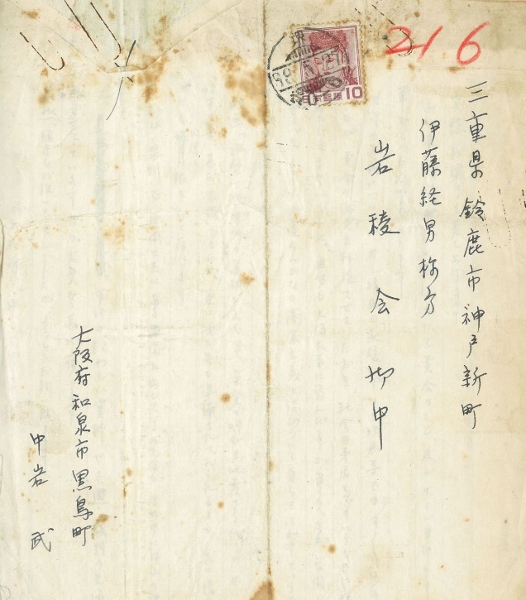 216
10
三重県鈴鹿市神戸新町
伊藤経男様方
岩稜会御中
大阪府和泉市黒鳥町
中岩武